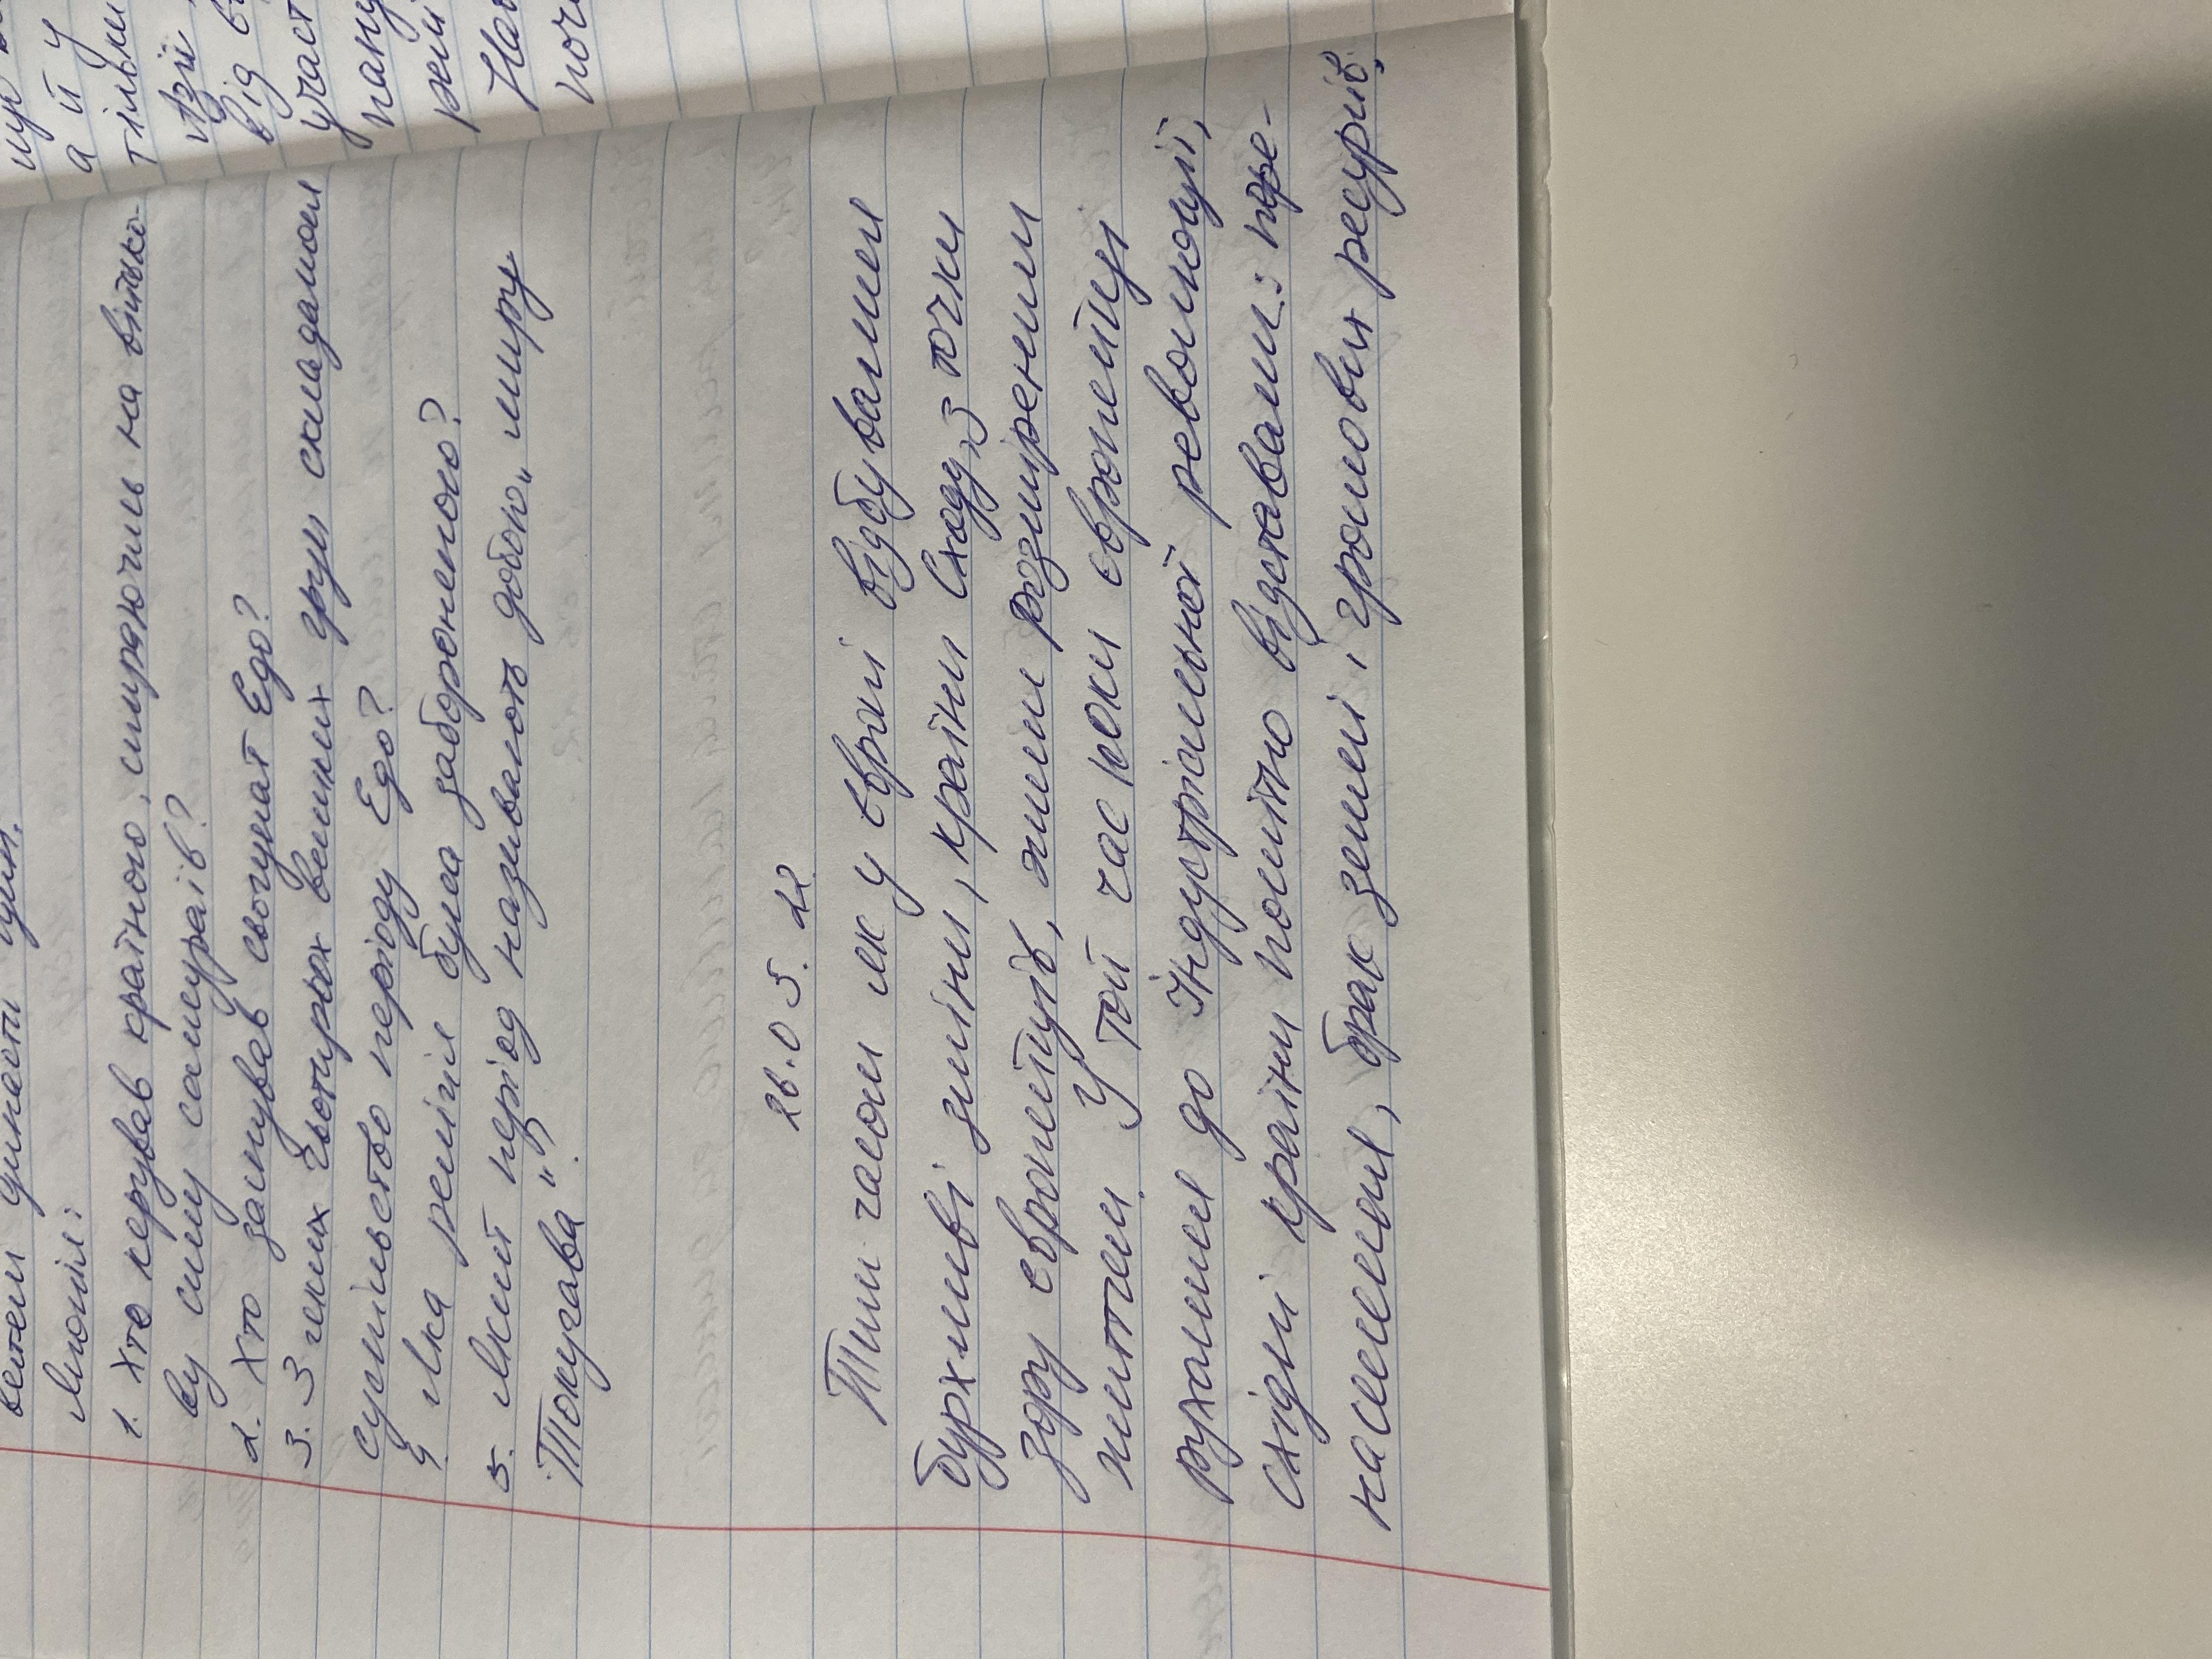 Японія:
1. Хто керував країною, спираючись на військо-
ву силу самураїв?
2. Хто заснував сьогунат Едо?
3. З яких чьотирьох великих груп складалося
суспільство періоду Едо?
4 Яка релігія була забороненою?
5. Який період називають добою „миру
Токугава"?
26.05.22
Тим часом як у Європі відбувалися
бурхливі зміни, країни Сходу, з точки
зору європейців, жили розміреним
життям. У той час поки європейці
рухалися до Індустріальної революції,
східні країни помітно відставали: пере-
населення, брак землі і грошових ресурсів.
а й у
тільки
Азії
від